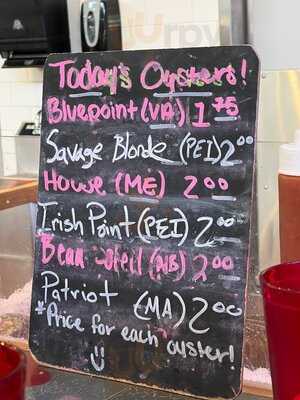 Today's Oysters!
Bluepoint (VA) 1 75
Savage Blonde (PEI) 2 00
Howe (ME) 2 00
Irish Point (PEI) 2 00
Beau (NB) 2 00
Patriot (MA) 2 00
*Price for each oyster!